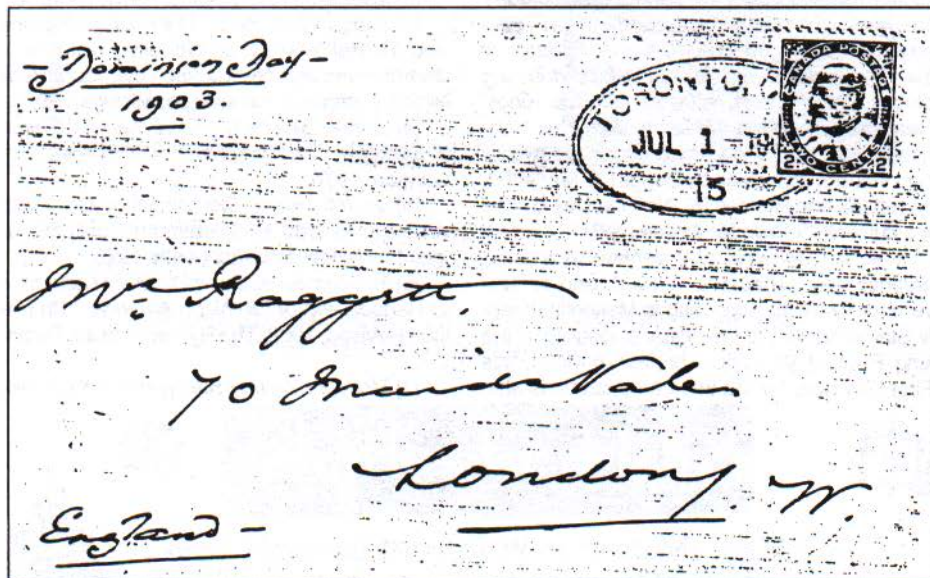 - Dominion Day -
1903.
TORONTO,
JUL 1 - 190
15
CANADA POSTAGE
TWO CENTS
2 2
Mr. Raggett.
70 Maida Vale
London, W.
England -